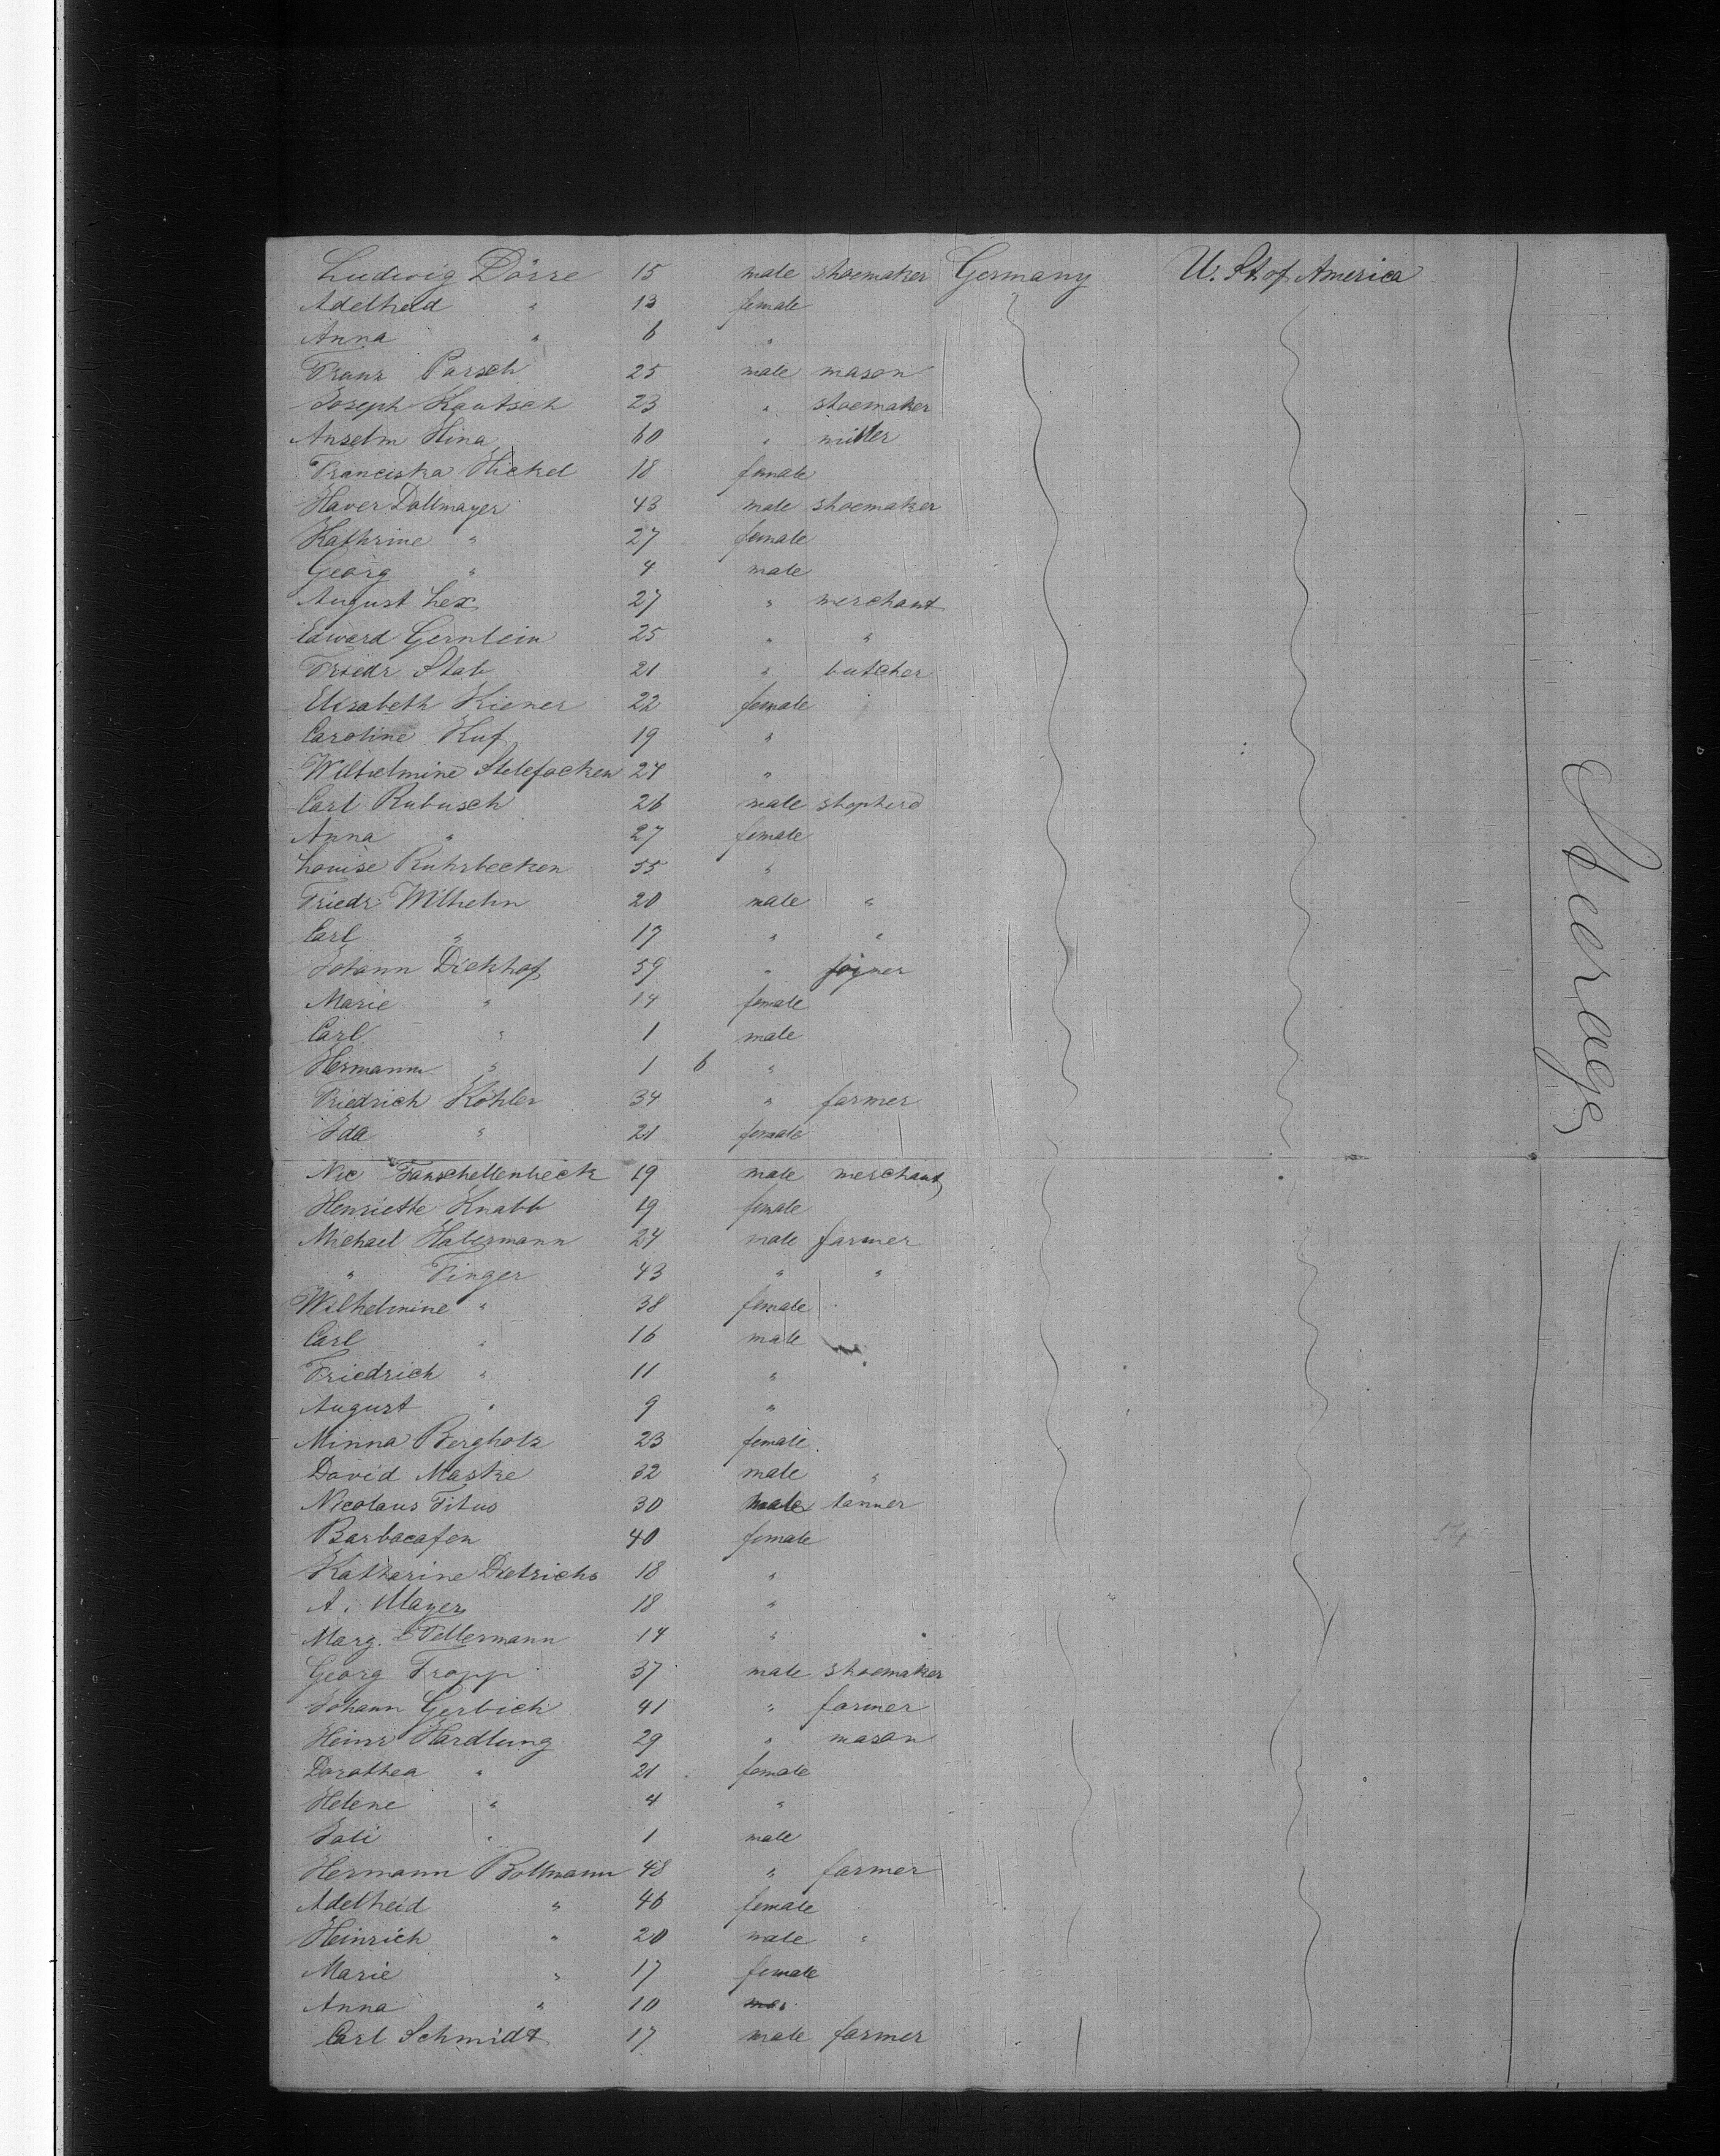 Ludwig Dörre 15 male shoemaker Germany U. St. of America
Adelheid " 13 female
Anna " 6 "
Franz Parsch 25 male mason
Joseph Kautsch 23 " shoemaker
Anselm Hina 60 " miller
Franciska Hickel 18 female
Xaver Dallmayer 43 male shoemaker
Kathrine " 27 female
Georg " 4 male
August Lex 27 " merchant
Edward Gernlein 25 " "
Friedr Stab 21 " butcher
Elisabeth Kiener 22 female
Caroline Kuf 19 "
Wilhelmine Stelefacken 24 "
Carl Rubusch 26 male shepherd
Anna " 27 female
Louise Ruhrbecken 55 "
Friedr Wilhelm 20 male "
Carl " 17 " "
Johann Dickhof 59 " joyner
Marie " 14 female
Carl " 1 male
Hermann " 1 6 "
Friedrich Köhler 34 " farmer
Ida " 21 female
Nic Tanschellenbeck 19 male merchant
Henriette Knabb 19 female
Michael Habermann 24 male farmer
" Finger 43 " "
Wilhelmine " 38 female
Carl " 16 male
Friedrich " 11 "
August " 9 "
Minna Bergholz 23 female
David Maske 32 male "
Nicolaus Titus 30 male tanner
Barbacafen 40 female
Katharine Dietrichs 18 "
A. Mayer 18 "
Marg. Fellermann 14 "
Georg Tropp 37 male shoemaker
Johann Gerbich 41 " farmer
Heinr Hardlung 29 " mason
Dorothea " 21 female
Helene " 4 "
Juli " 1 male
Hermann Bollmann 48 " farmer
Adelheid " 46 female
Heinrich " 20 male "
Marie " 17 female
Anna " 10
Carl Schmidt 17 male farmer
Steerage